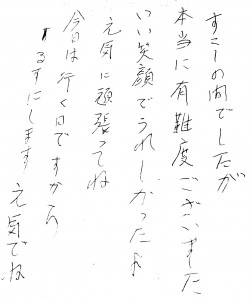 すこしの間でしたが
本当に有難度ございました
いい笑顔でうれしかったよ
元気に頑張ってね
今日は行く日ですから
るすにします 元気でね